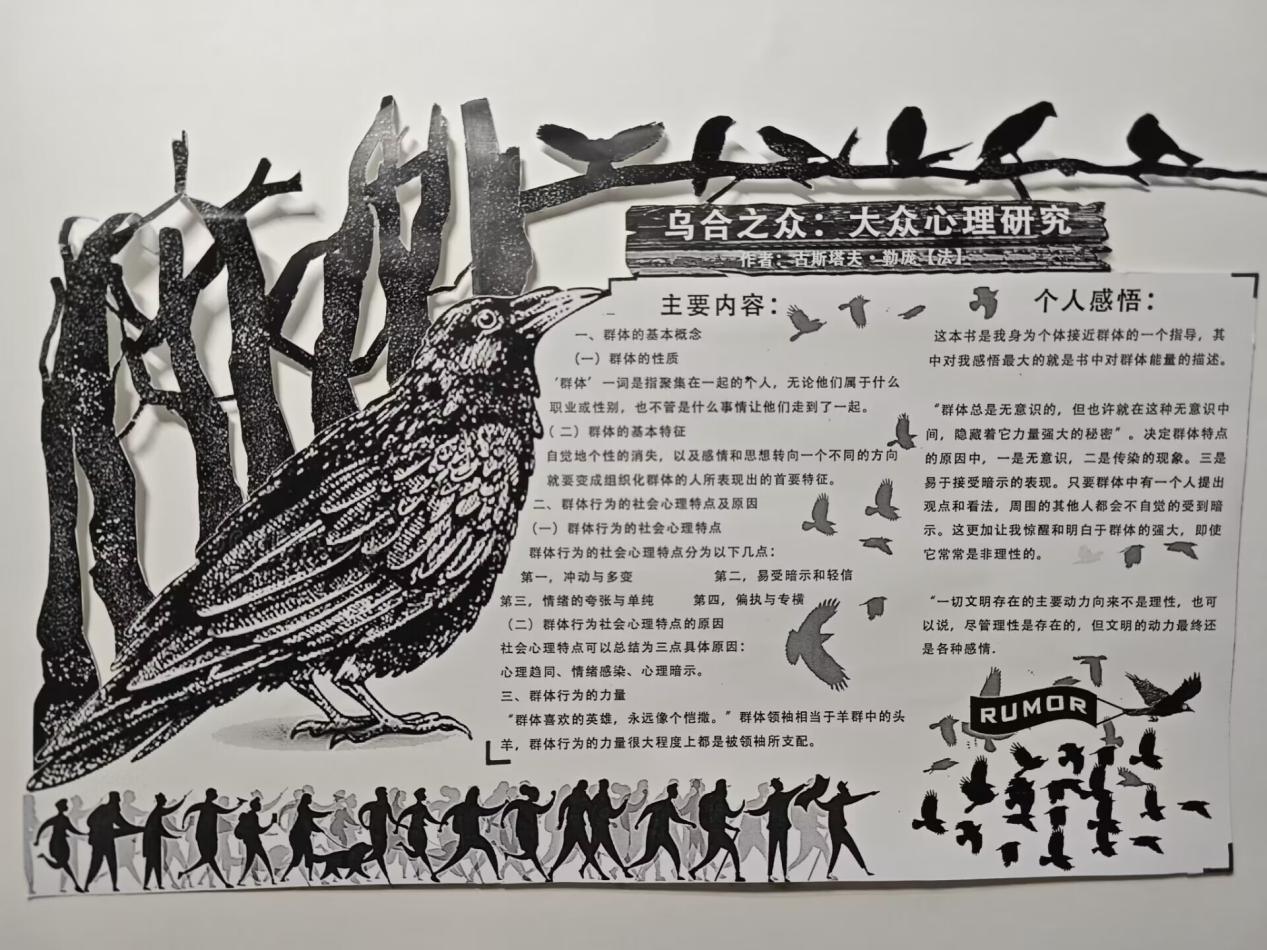 乌合之众：大众心理研究
作者：古斯塔夫·勒庞【法】
主要内容：
一、群体的基本概念
（一）群体的性质
‘群体’一词是指聚集在一起的个人，无论他们属于什么
职业或性别，也不管是什么事情让他们走到了一起。
（二）群体的基本特征
自觉地个性的消失，以及感情和思想转向一个不同的方向
就要变成组织化群体的人所表现出的首要特征。
二、群体行为的社会心理特点及原因
（一）群体行为的社会心理特点
群体行为的社会心理特点分为以下几点：
第一，冲动与多变 第二，易受暗示和轻信
第三，情绪的夸张与单纯 第四，偏执与专横
（二）群体行为社会心理特点的原因
社会心理特点可以总结为三点具体原因：
心理趋同、情绪感染、心理暗示。
三、群体行为的力量
“群体喜欢的英雄，永远像个恺撒。”群体领袖相当于羊群中的头
羊，群体行为的力量很大程度上都是被领袖所支配。
个人感悟：
这本书是我身为个体接近群体的一个指导，其
中对我感悟最大的就是书中对群体能量的描述。
“群体总是无意识的，但也许就在这种无意识中
间，隐藏着它力量强大的秘密”。决定群体特点
的原因中，一是无意识，二是传染的现象。三是
易于接受暗示的表现。只要群体中有一个人提出
观点和看法，周围的其他人都会不自觉的受到暗
示。这更加让我惊醒和明白于群体的强大，即使
它常常是非理性的。
“一切文明存在的主要动力向来不是理性，也可
以说，尽管理性是存在的，但文明的动力最终还
是各种感情.
RUMOR